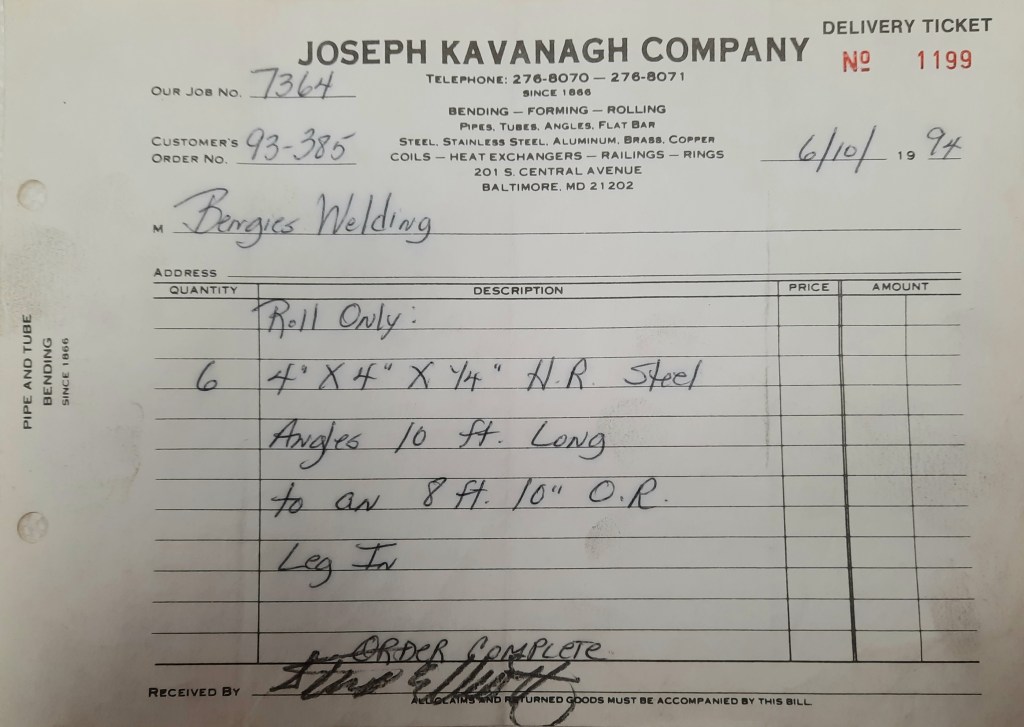 DELIVERY TICKET
JOSEPH KAVANAGH COMPANY
Nº 1199
OUR JOB NO. 7364
TELEPHONE: 276-8070 — 276-8071
SINCE 1866
BENDING — FORMING — ROLLING
PIPES, TUBES, ANGLES, FLAT BAR
CUSTOMER'S ORDER NO. 93-385
STEEL, STAINLESS STEEL, ALUMINUM, BRASS, COPPER
COILS — HEAT EXCHANGERS — RAILINGS — RINGS
6/10/ 19 94
201 S. CENTRAL AVENUE
BALTIMORE, MD 21202
M Bengies Welding
ADDRESS
QUANTITY DESCRIPTION PRICE AMOUNT
Roll Only:
6 4" X 4" X 1/4" H.R. Steel
Angles 10 ft. Long
to an 8 ft. 10" O.R.
Leg In
ORDER COMPLETE
RECEIVED BY
ALL CLAIMS AND RETURNED GOODS MUST BE ACCOMPANIED BY THIS BILL
PIPE AND TUBE
BENDING
SINCE 1866